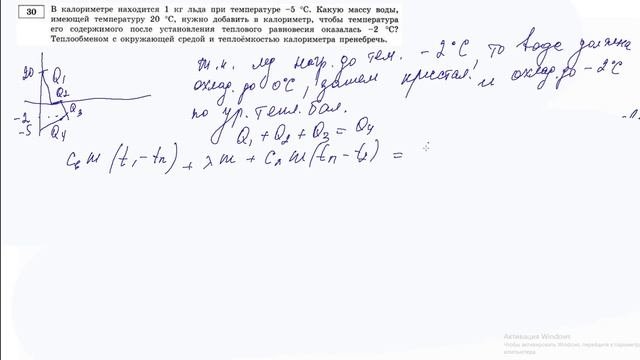 30
В калориметре находится 1 кг льда при температуре −5 °C. Какую массу воды,
имеющей температуру 20 °C, нужно добавить в калориметр, чтобы температура
его содержимого после установления теплового равновесия оказалась −2 °C?
Теплообменом с окружающей средой и теплоёмкостью калориметра пренебречь.
20 Q₁
Q₂
-2 Q₃
-5 Q₄
т.к. лёд нагр. до тем. -2°C, то вода должна
охлад. до 0°C, затем кристал. и охлад. до -2°C
по ур. тепл. бал.
Q₁ + Q₂ + Q₃ = Q₄
cвm(t₁-tп) + λm + cлm(tп-t₂) =
Активация Windows
Чтобы активировать Windows, перейдите в параметры
компьютера.